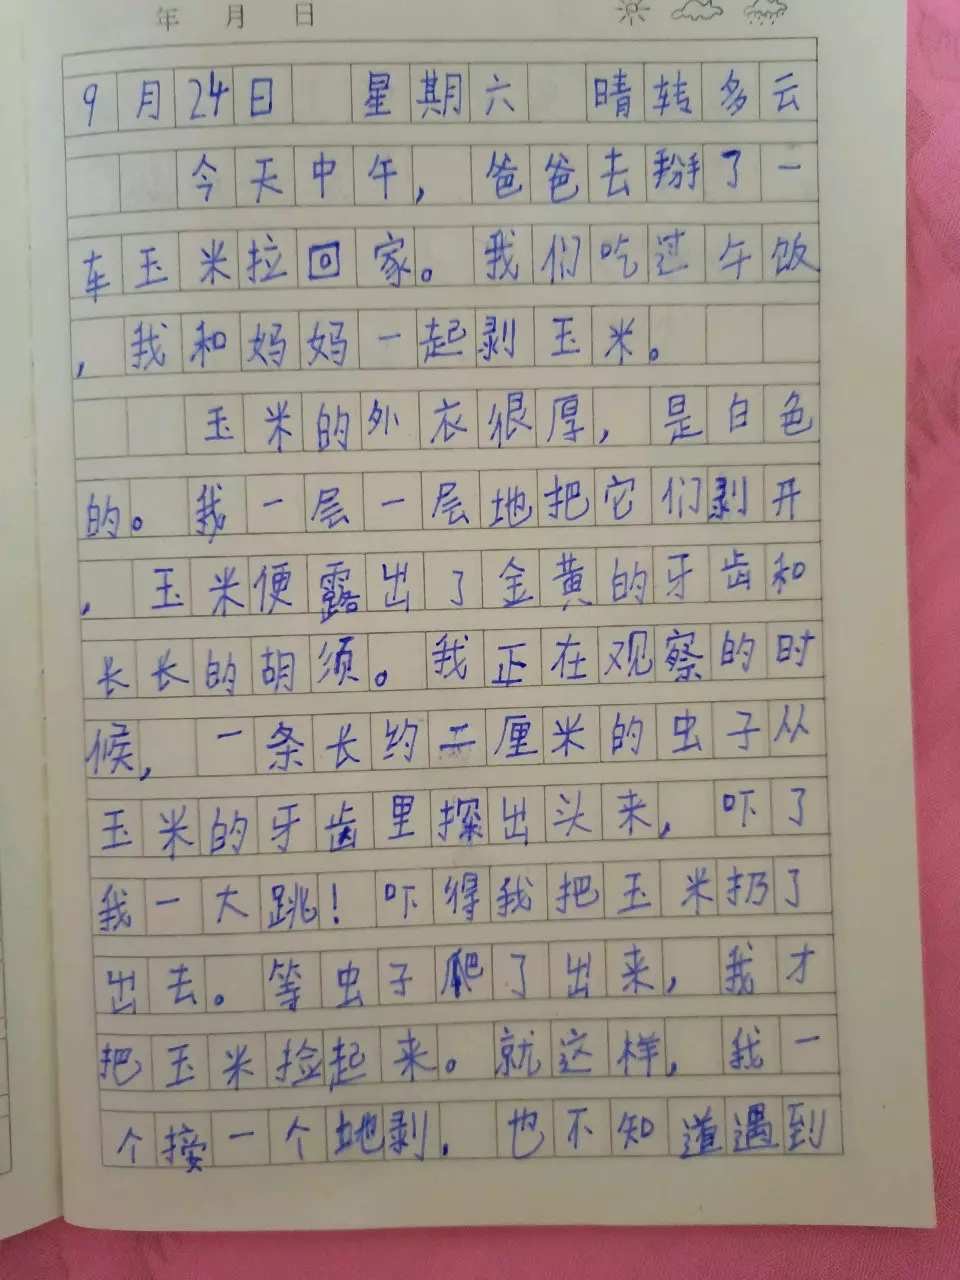 年 月 日
9月24日 星期六 晴转多云
今天中午，爸爸去掰了一
车玉米拉回家。我们吃过午饭
，我和妈妈一起剥玉米。
玉米的外衣很厚，是白色
的。我一层一层地把它们剥开
，玉米便露出了金黄的牙齿和
长长的胡须。我正在观察的时
候，一条长约二厘米的虫子从
玉米的牙齿里探出头来，吓了
我一大跳！吓得我把玉米扔了
出去。等虫子爬了出来，我才
把玉米捡起来。就这样，我一
个接一个地剥．也不知道遇到